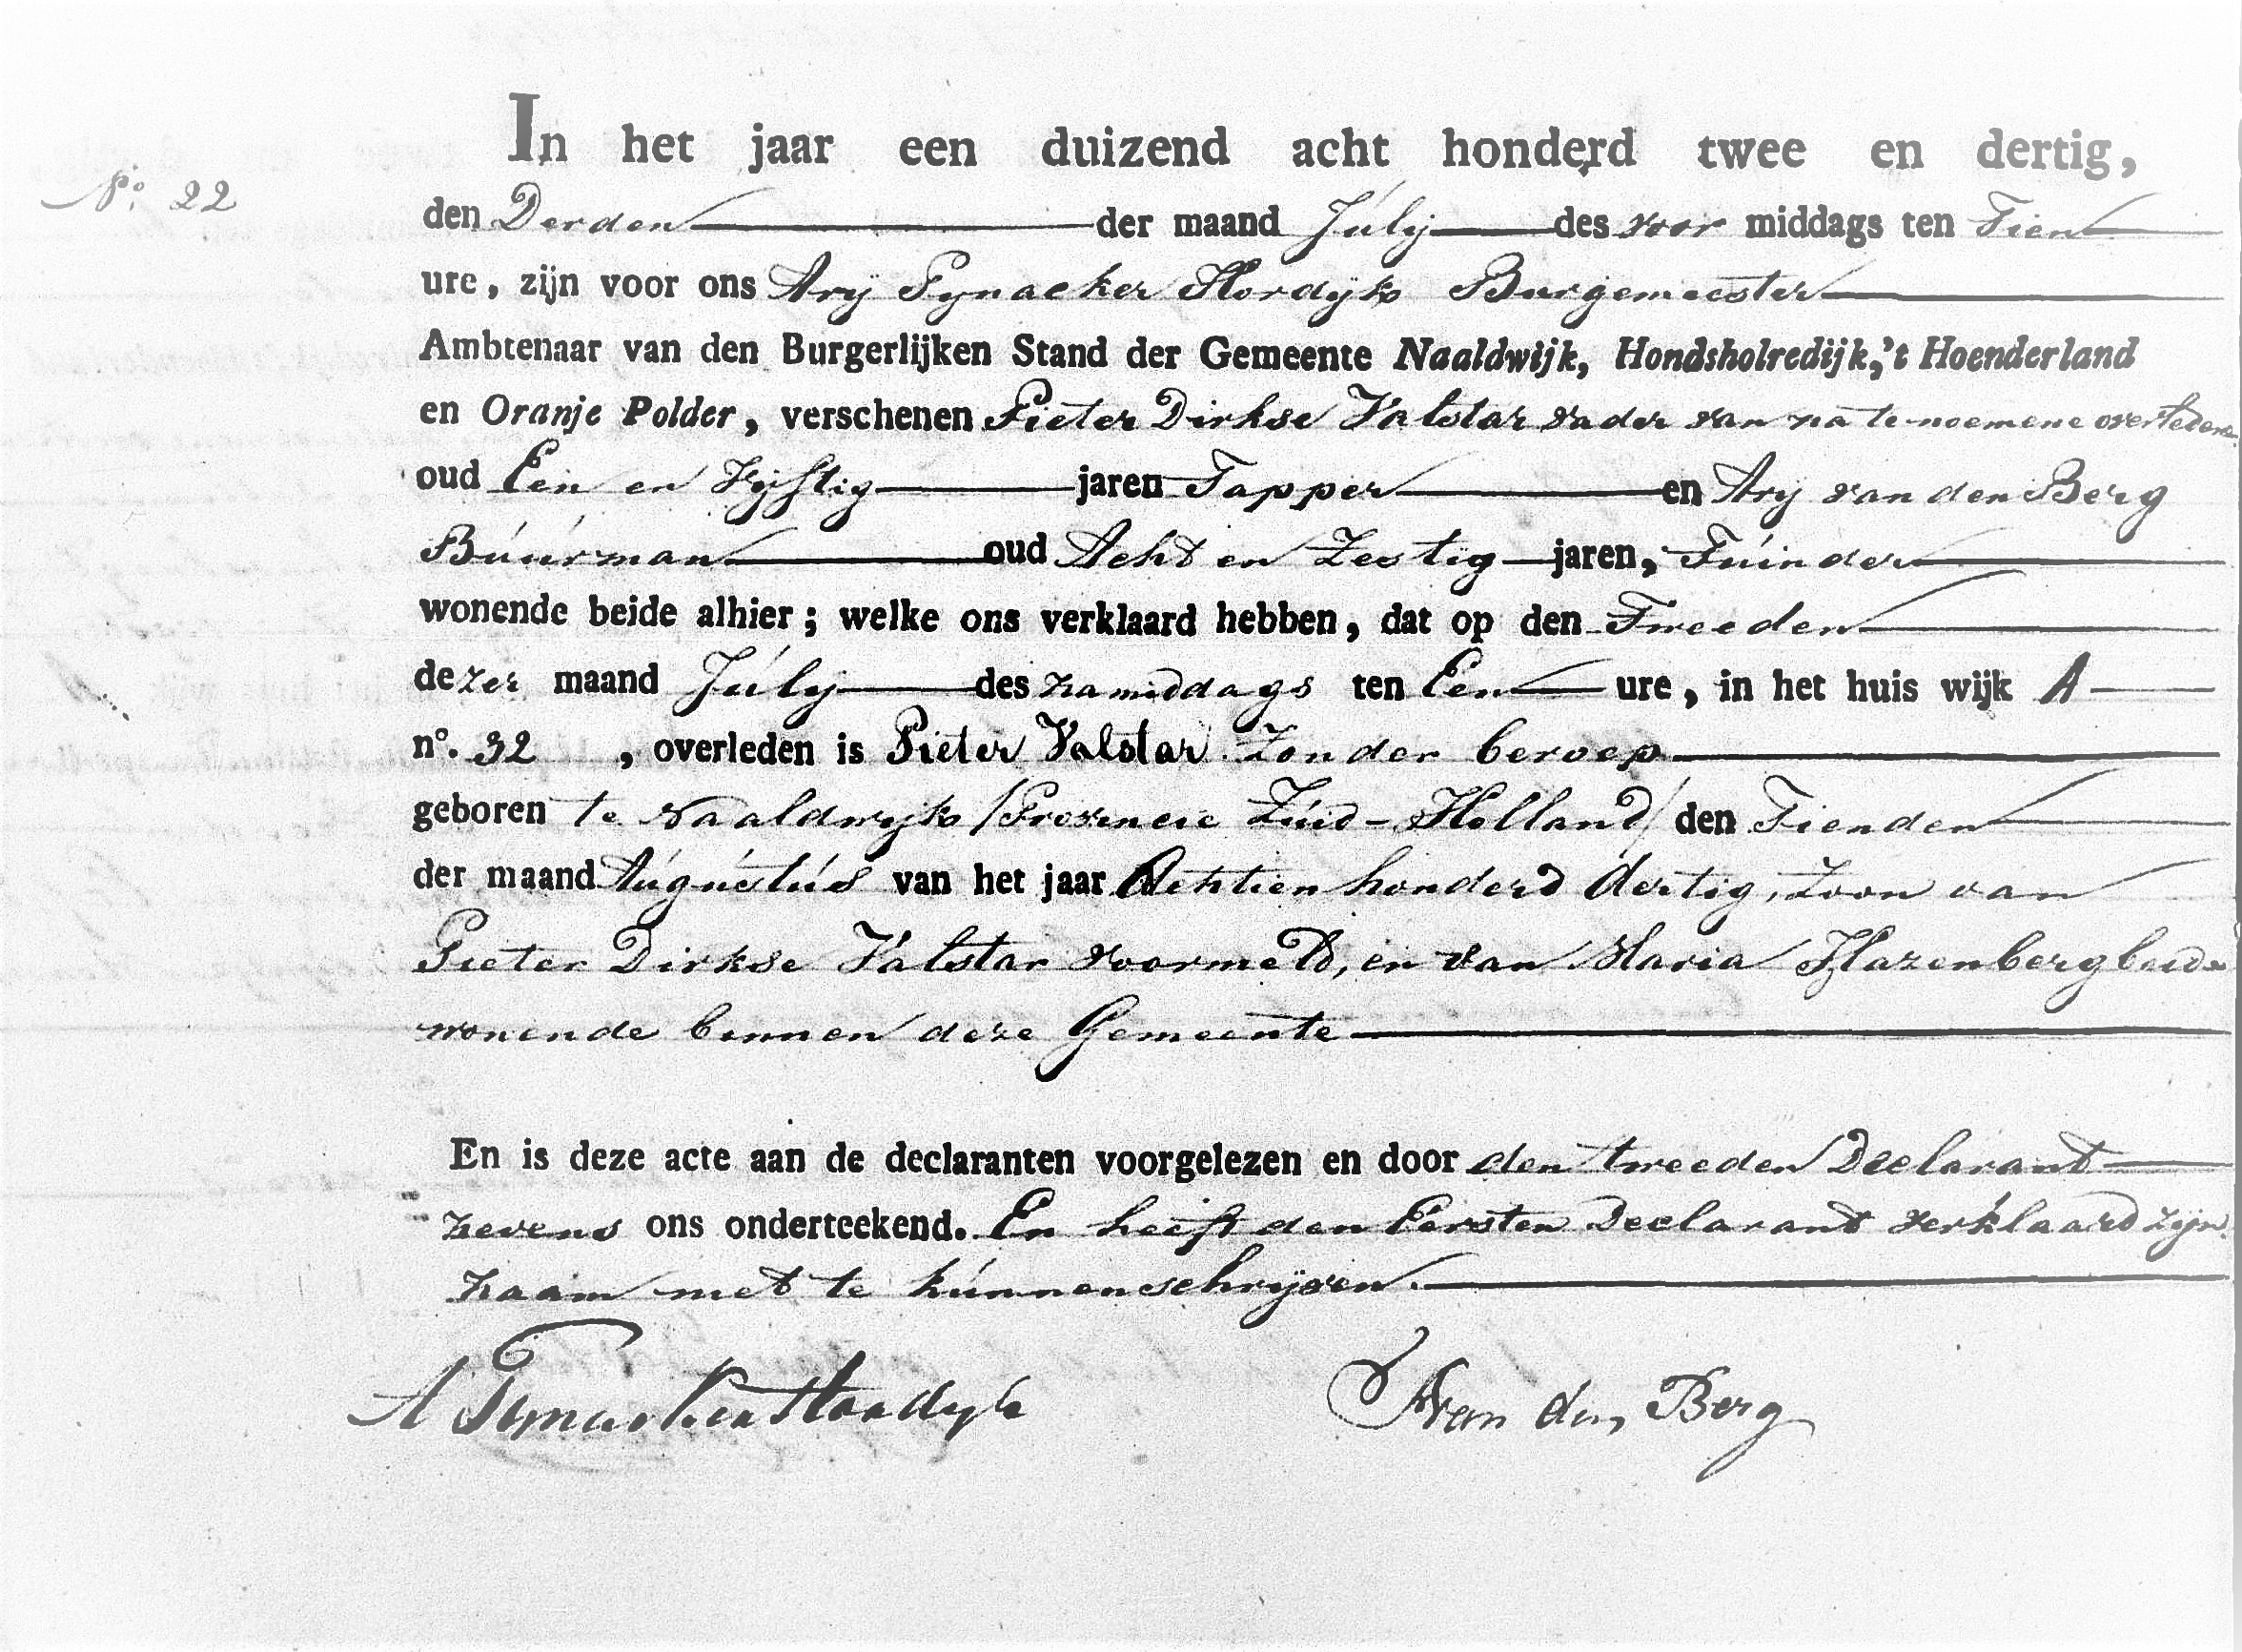 In het jaar een duizend acht honderd twee en dertig,
No. 22
den Derden der maand Júlij des voor middags ten Tien
ure, zijn voor ons Arij Pynacker Hordijk Burgemeester
Ambtenaar van den Burgerlijken Stand der Gemeente Naaldwijk, Hondsholredijk, 't Hoenderland
en Oranje Polder, verschenen Pieter Dirkse Valstar vader van na te noemene overledene
oud Een en Vijftig jaren Tapper en Arij van den Berg
Búúrman oud Acht en Zestig jaren, Túinder
wonende beide alhier; welke ons verklaard hebben, dat op den Tweeden
dezer maand Júlij des namiddags ten Een ure, in het huis wijk A
no. 32, overleden is Pieter Valstar Zonder beroep
geboren te Naaldwijk /Provincie Zúid-Holland/ den Tienden
der maand Aúgústús van het jaar Achtien honderd dertig, Zoon van
Pieter Dirkse Valstar voormeld, en van Maria Hazenberg beide
wonende binnen deze Gemeente
En is deze acte aan de declaranten voorgelezen en door den tweeden Declarant
nevens ons onderteekend. En heeft den Eersten Declarant verklaard zijn
naam niet te kúnnen schrijven.
A Pynacker Hordijk
A van den Berg